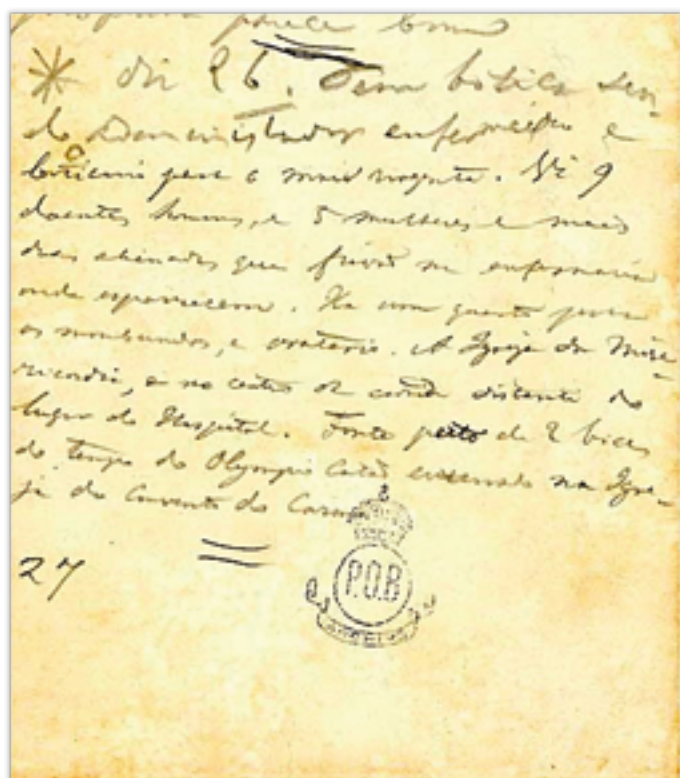 parece bom
* dia 26. Tem botica sen-
do Administrador enfermeiro e
boticario para o mais urgente. Vi 9
doentes homens, e 5 mulheres e mais
duas alienadas que ficão na enfermaria
onde esparecem. Ha um quarto para
os moribundos, e oratorio. A Igreja da Mise-
ricordia, e no centro da cidade distante do
lugar do Hospital. Fonte perto de 2 bicas
do tempo do Olympio Catão enterrado na Igre-
ja do Convento do Carmo
27
P.O.B